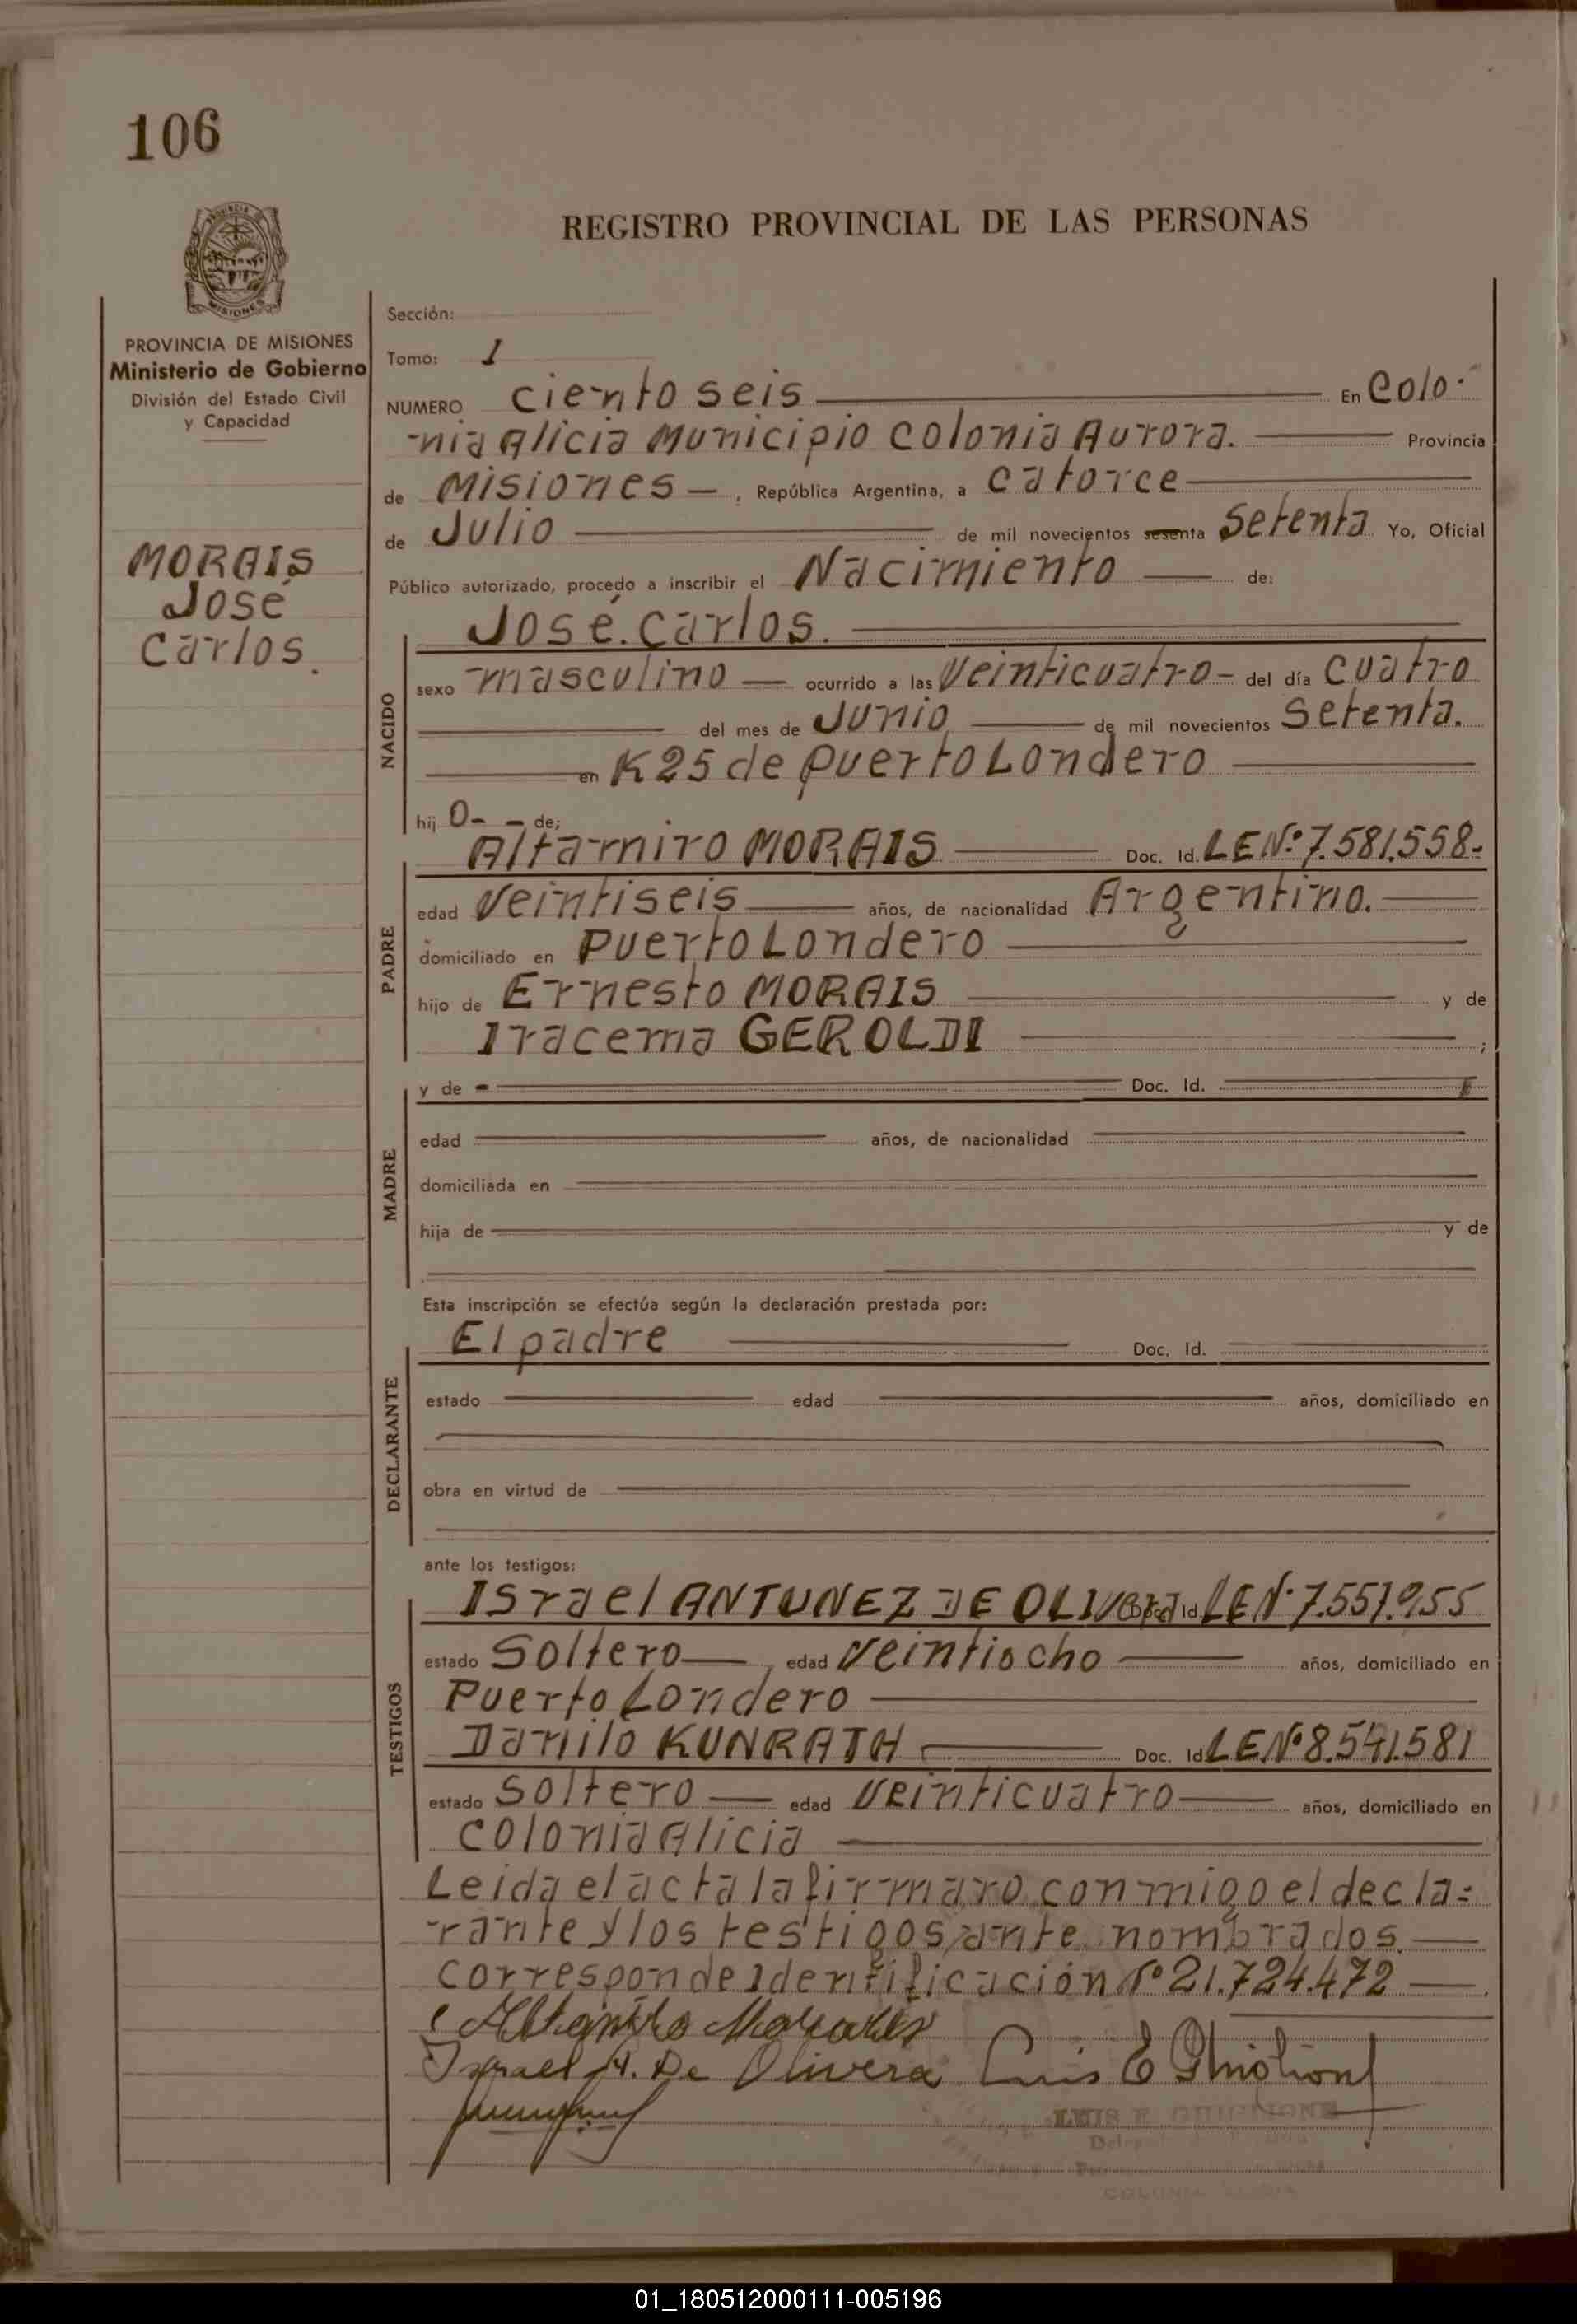 106
REGISTRO PROVINCIAL DE LAS PERSONAS
MISIONES
PROVINCIA DE MISIONES
Ministerio de Gobierno
División del Estado Civil
y Capacidad
MORAIS
José
Carlos.
Sección:
Tomo: I
NUMERO ciento seis En Colo-
nia Alicia Municipio Colonia Aurora. Provincia
de Misiones, República Argentina, a catorce
de Julio de mil novecientos sesenta Setenta Yo, Oficial
Público autorizado, procedo a inscribir el Nacimiento de:
NACIDO
José Carlos.
sexo masculino ocurrido a las veinticuatro del día cuatro
del mes de Junio de mil novecientos Setenta.
en K25 de Puerto Londero
hij o de;
PADRE
Altamiro MORAIS Doc. Id. LE Nº 7.581.558.
edad veintiseis años, de nacionalidad Argentino.
domiciliado en Puerto Londero
hijo de Ernesto MORAIS y de
Iracema GEROLDI ;
MADRE
y de Doc. Id.
edad años, de nacionalidad
domiciliada en
hija de y de
Esta inscripción se efectúa según la declaración prestada por:
DECLARANTE
El padre Doc. Id.
estado edad años, domiciliado en
obra en virtud de
ante los testigos:
TESTIGOS
Israel ANTUNEZ DE OLIVERA Doc. Id. LE Nº 7.557.955
estado Soltero, edad veintiocho años, domiciliado en
Puerto Londero
Danilo KUNRATH Doc. Id. LE Nº 8.541.581
estado Soltero edad veinticuatro años, domiciliado en
Colonia Alicia
Leida el acta la firmaro conmigo el decla=
rante y los testigos ante nombrados.
Corresponde Identificación Nº 21.724.472
Israel A. De Olivera Luis E Ghiglione
LUIS E. GHIGLIONE
COLONIA ALICIA
01_180512000111-005196